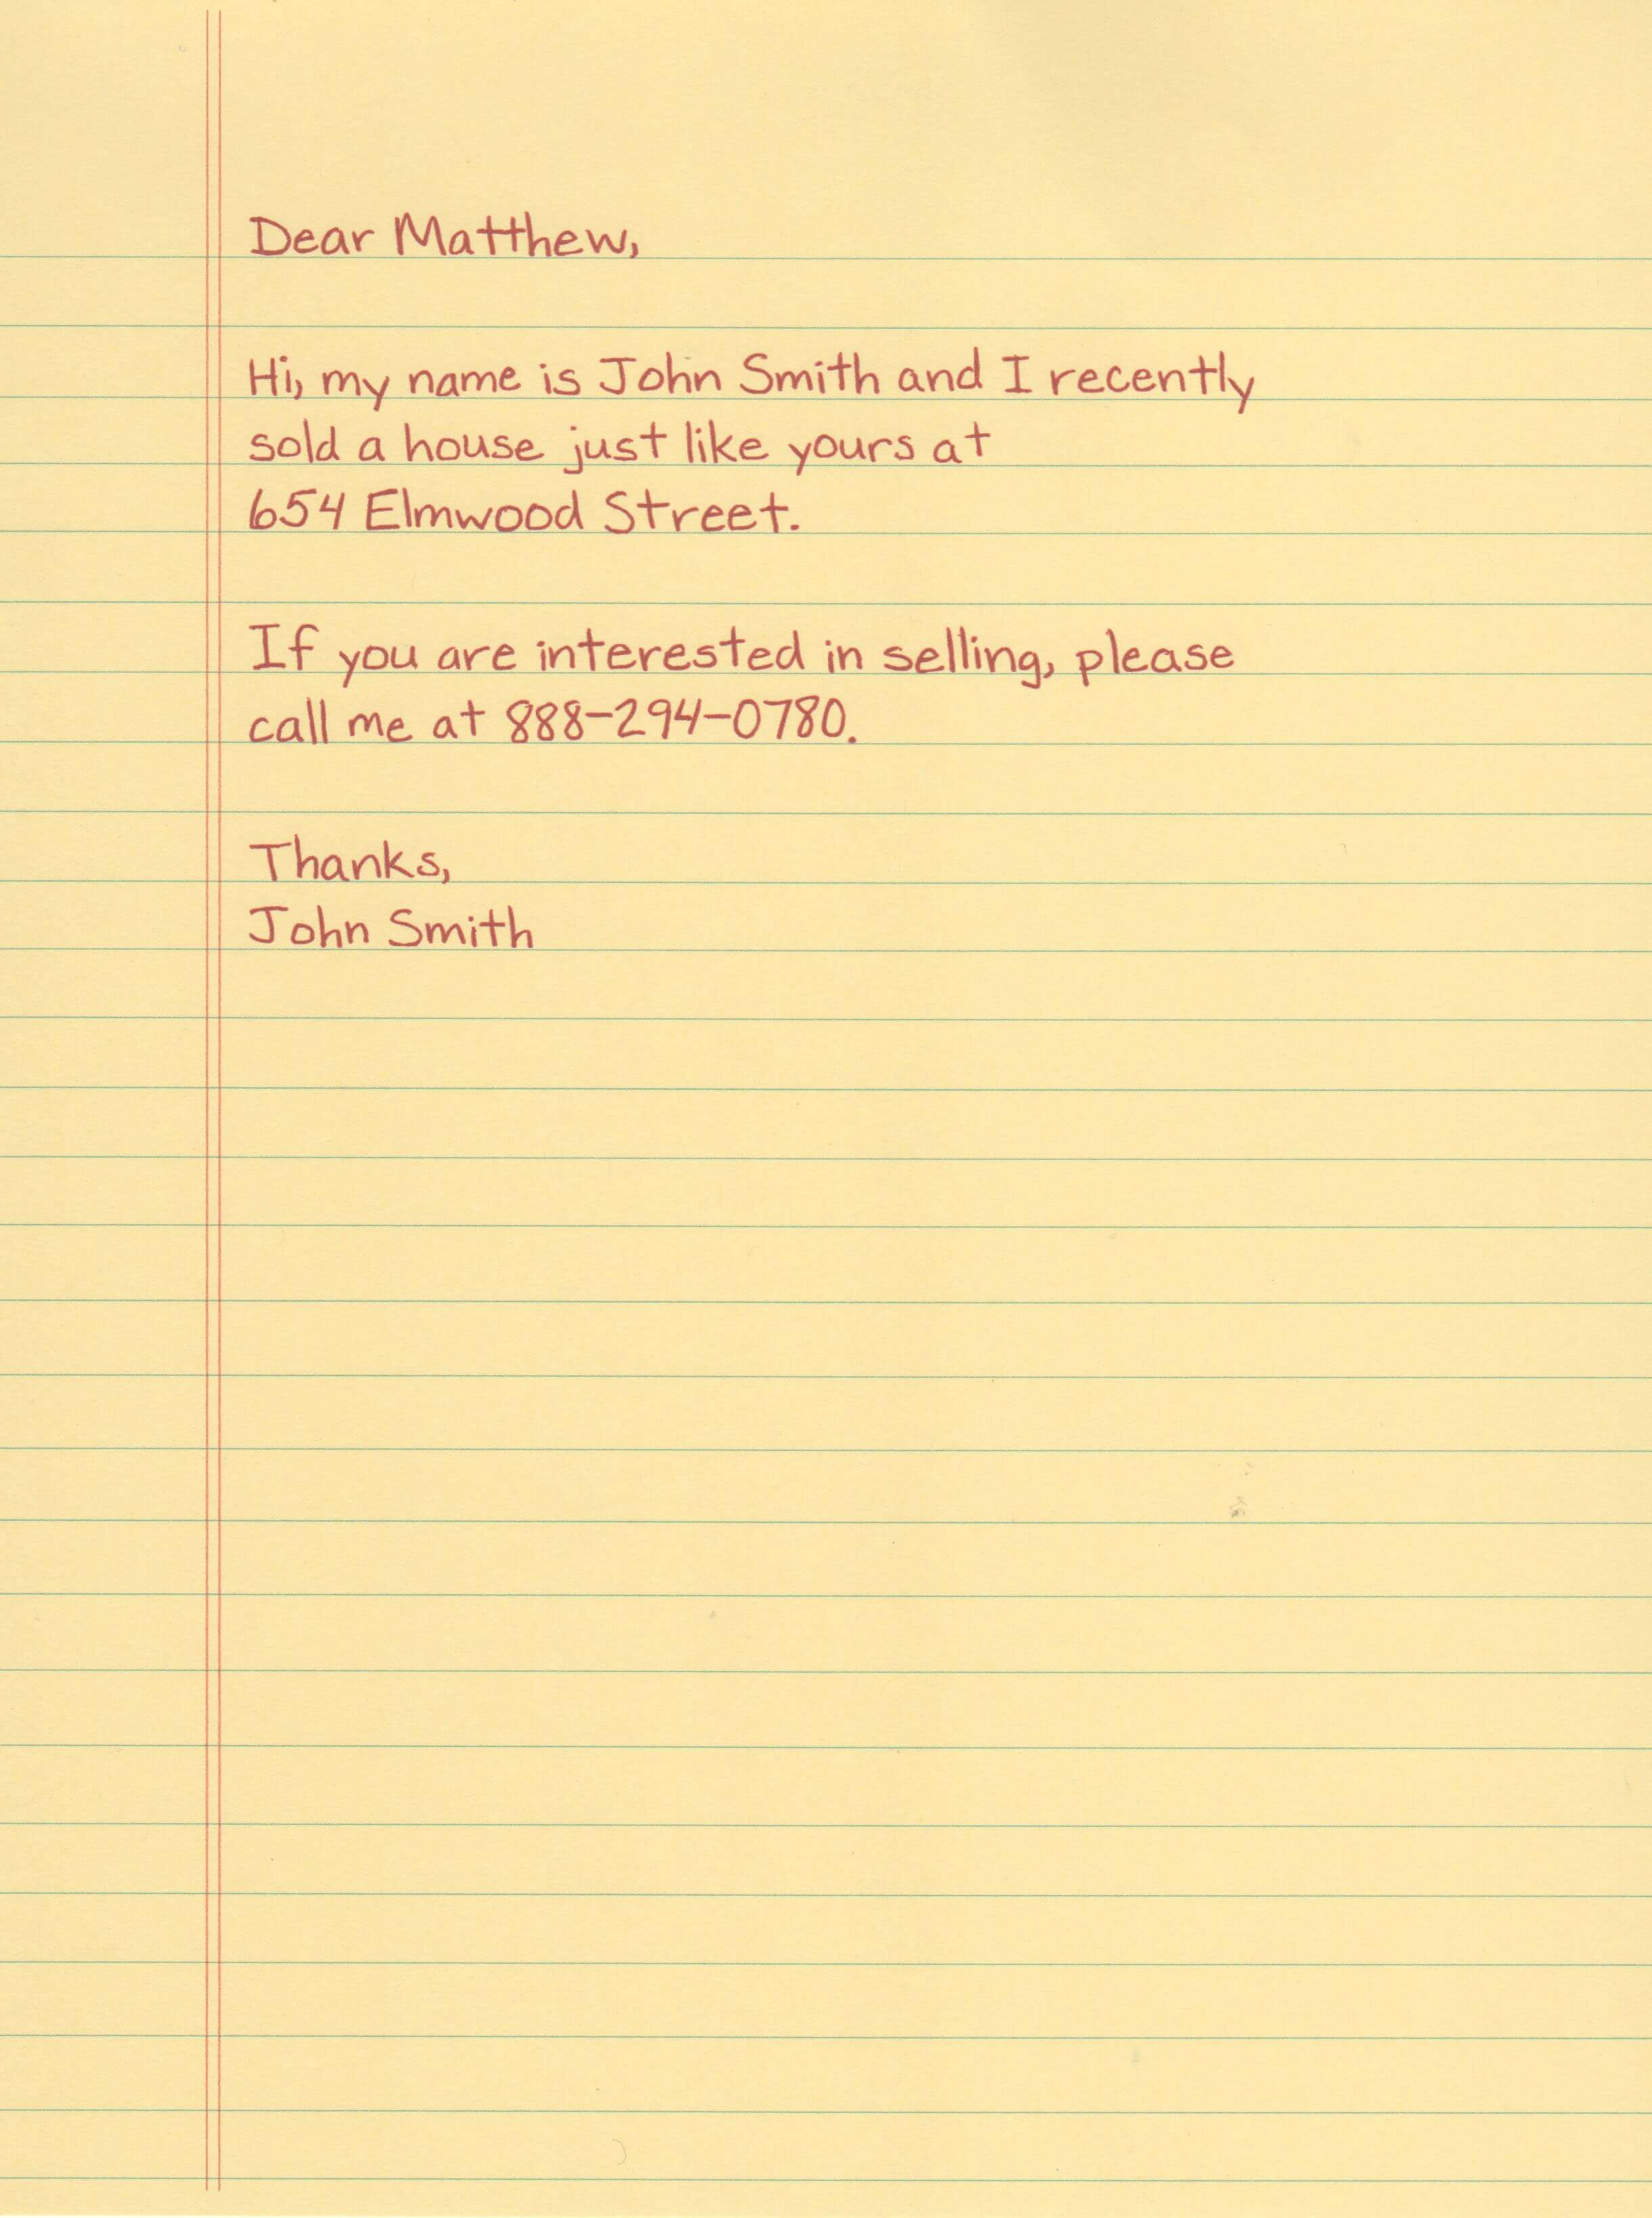 Dear Matthew,
Hi, my name is John Smith and I recently
sold a house just like yours at
654 Elmwood Street.
If you are interested in selling, please
call me at 888-294-0780.
Thanks,
John Smith